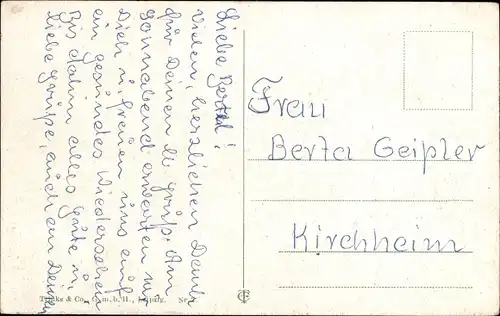 Liebe Berta!
Vielen, herzlichen Dank
für Deinen lb. Gruß. Am
Sonnabend erwarten wir
Dich u. freuen uns auf
ein gesundes Wiedersehen
Bis dahin alles Gute u.
liebe Grüße, auch an Deinen
Frau
Berta Geipler
Kirchheim
& Co., G. m. b. H., Leipzig. Nr.